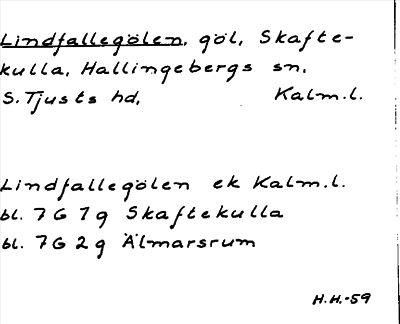 Lindfallegölen, göl, Skafte-
kulla, Hallingebergs sn,
S. Tjusts hd, Kalm.l.
Lindfallegölen ek Kalm.l.
bl. 7 G 7 g Skaftekulla
bl. 7 G 2 g Älmarsrum
H.H.-59